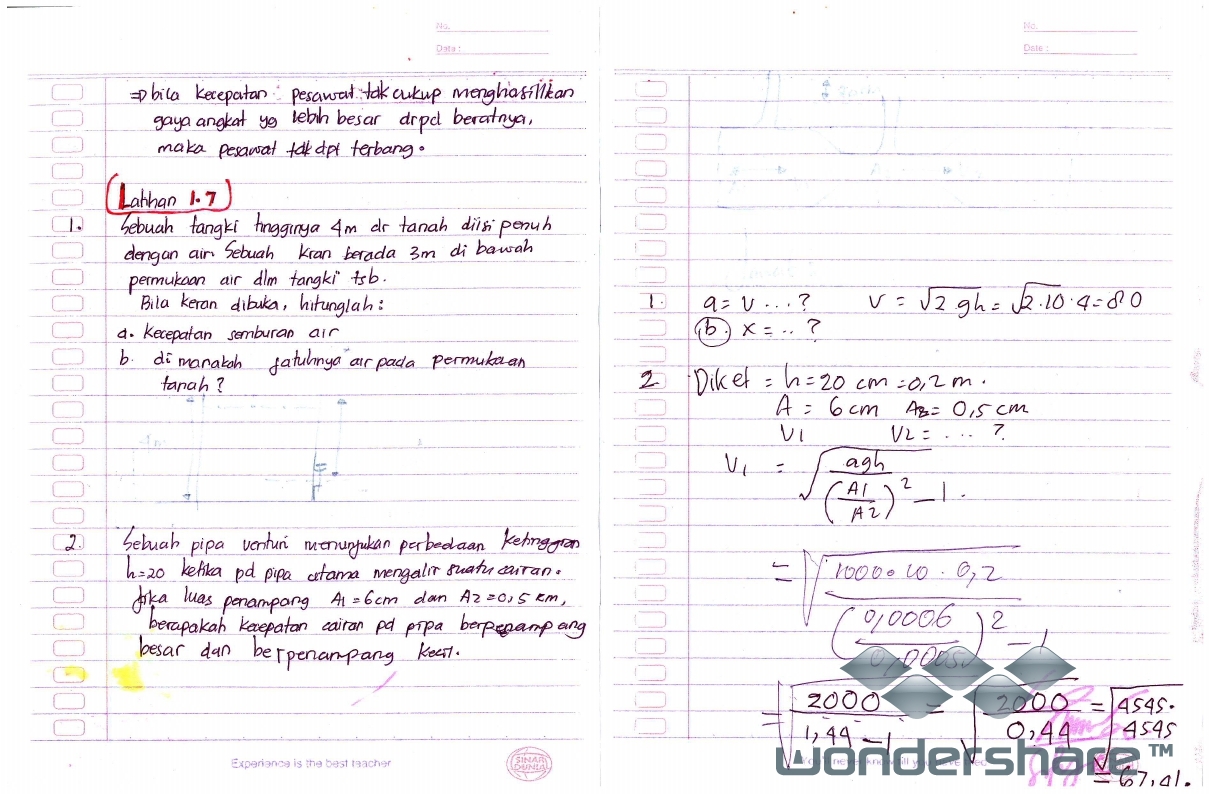 No.
Date :
⇒ bila kecepatan pesawat tdk cukup menghasilkan
gaya angkat yg lebih besar drpd beratnya,
maka pesawat tdk dpt terbang.
Latihan 1.7
1. Sebuah tangki tingginya 4m dr tanah diisi penuh
dengan air. Sebuah kran berada 3m di bawah
permukaan air dlm tangki tsb.
Bila keran dibuka, hitunglah :
a. Kecepatan semburan air
b. di manakah jatuhnya air pada permukaan
tanah ?
2. Sebuah pipa venturi menunjukan perbedaan ketinggian
h=20 ketika pd pipa utama mengalir suatu cairan.
Jika luas penampang A1=6cm dan A2=0,5 cm,
berapakah kecepatan cairan pd pipa berpenampang
besar dan berpenampang kecil.
Experience is the best teacher
SINAR DUNIA
No.
Date :
1. a = v ...? v = √2.gh = √2.10.4=80
b. x = .. ?
2 Diket = h=20 cm =0,2 m.
A = 6 cm A2= 0,5 cm
V1 V2 = .... ?
V1 = √agh / (A1/A2)² – 1.
= √1000.10.0,2 / (0,0006/0,0005)² – 1
= √2000 / 1,44 – 1 = √2000 / 0,44 = √4545.4545
= 67,41.
wondershare™